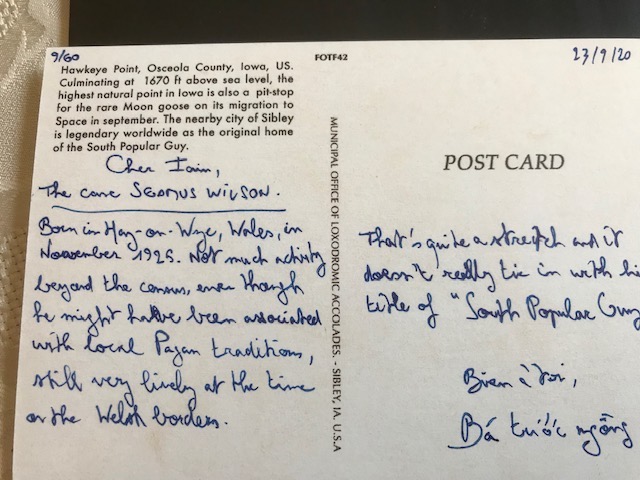 9/60
FOTF42
23/9/20
Hawkeye Point, Osceola County, Iowa, US.
Culminating at 1670 ft above sea level, the
highest natural point in Iowa is also a pit-stop
for the rare Moon goose on its migration to
Space in september. The nearby city of Sibley
is legendary worldwide as the original home
of the South Popular Guy.
Cher Iain,
The case SEAMUS WILSON.
Born in Hay-on-Wye, Wales, in
November 1925. Not much activity
beyond the census, even though
he might have been associated
with local Pagan traditions,
still very lively at the time
on the Welsh borders.
MUNICIPAL OFFICE OF LOXODROMIC ACCOLADES. - SIBLEY, IA. U.S.A
POST CARD
That's quite a stretch and it
doesn't really tie in with hi
title of "South Popular Guy
Bien à toi,
Bá tước ngỗng